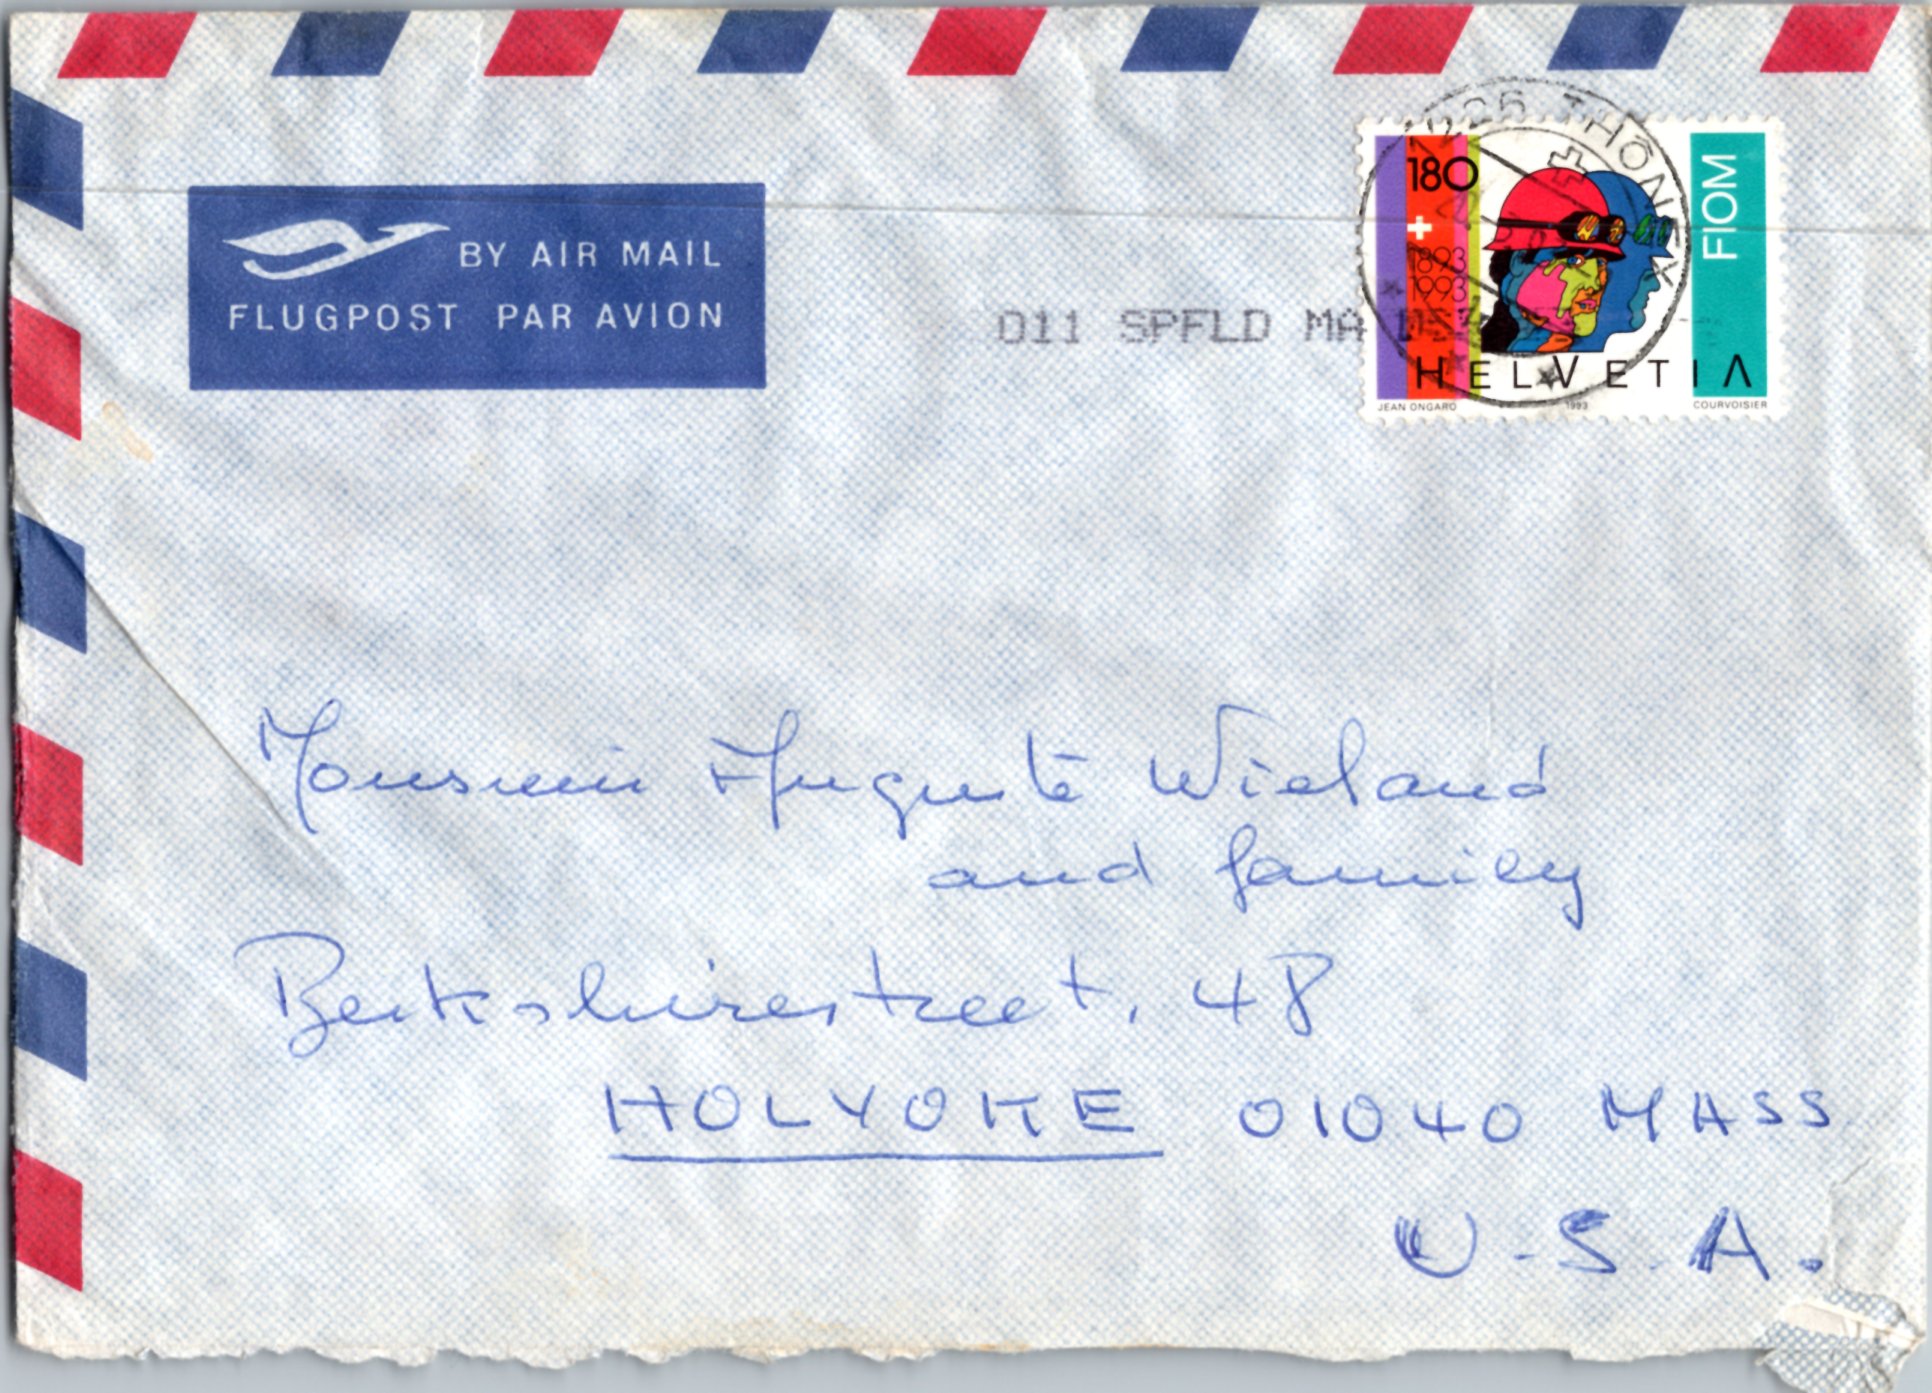 BY AIR MAIL
FLUGPOST PAR AVION
1226 THÔNEX
180
1893
1993
FIOM
HELVETIA
JEAN ONGARO 1993 COURVOISIER
011 SPFLD MA
Monsieur Auguste Wieland
and family
Berkshirestreet, 48
HOLYOKE 01040 MASS
U.S.A.